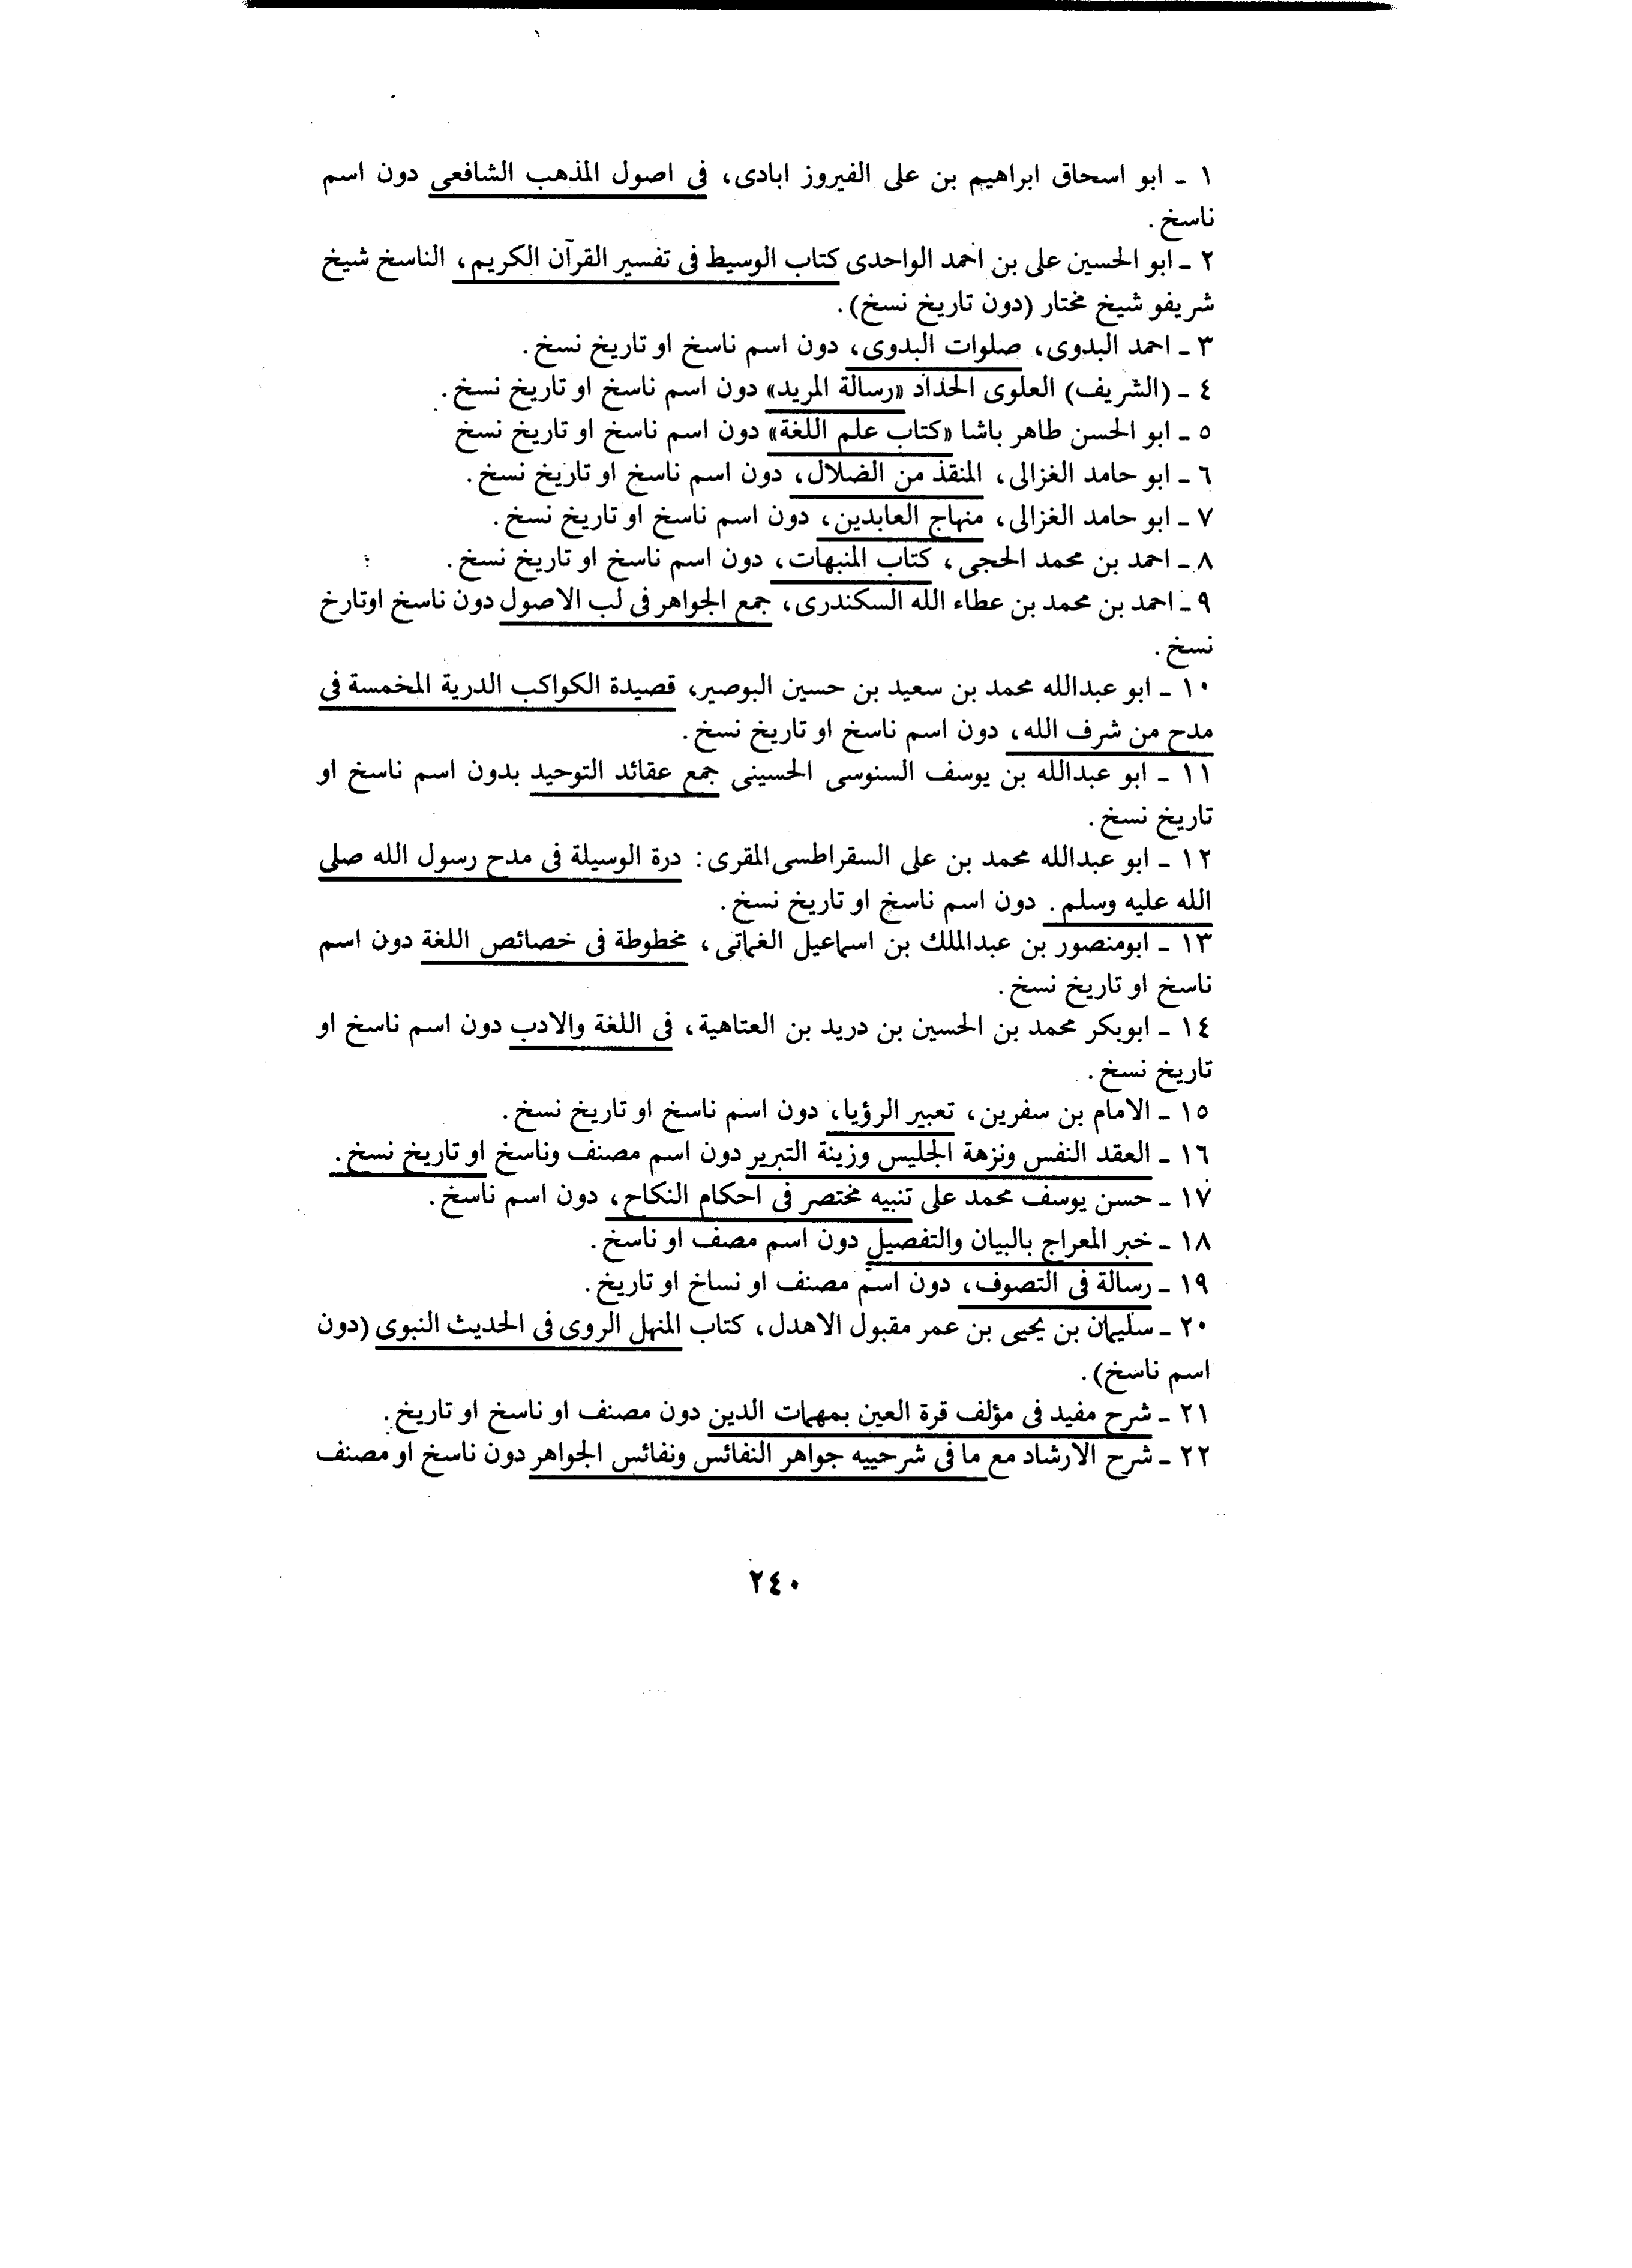 ١ ـ ابو اسحاق ابراهيم بن على الفيروز ابادى، فى اصول المذهب الشافعى دون اسم
ناسخ.
٢ ـ ابو الحسين على بن احمد الواحدى كتاب الوسيط فى تفسير القرآن الكريم، الناسخ شيخ
شريفو شيخ مختار (دون تاريخ نسخ).
٣ ـ احمد البدوى، صلوات البدوى، دون اسم ناسخ او تاريخ نسخ.
٤ ـ (الشريف) العلوى الحداد «رسالة المريد» دون اسم ناسخ او تاريخ نسخ.
٥ ـ ابو الحسن طاهر باشا «كتاب علم اللغة» دون اسم ناسخ او تاريخ نسخ
٦ ـ ابو حامد الغزالى، المنقذ من الضلال، دون اسم ناسخ او تاريخ نسخ.
٧ ـ ابو حامد الغزالى، منهاج العابدين، دون اسم ناسخ او تاريخ نسخ.
٨ ـ احمد بن محمد الحجى، كتاب المنبهات، دون اسم ناسخ او تاريخ نسخ.
٩ ـ احمد بن محمد بن عطاء الله السكندرى، جمع الجواهر فى لب الاصول دون ناسخ اوتارخ
نسخ.
١٠ ـ ابو عبدالله محمد بن سعيد بن حسين البوصير، قصيدة الكواكب الدرية المخمسة فى
مدح من شرف الله، دون اسم ناسخ او تاريخ نسخ.
١١ ـ ابو عبدالله بن يوسف السنوسى الحسينى جمع عقائد التوحيد بدون اسم ناسخ او
تاريخ نسخ.
١٢ ـ ابو عبدالله محمد بن على السقراطسى المقرى: درة الوسيلة فى مدح رسول الله صلى
الله عليه وسلم. دون اسم ناسخ او تاريخ نسخ.
١٣ ـ ابومنصور بن عبدالملك بن اسماعيل الغماتى، مخطوطة فى خصائص اللغة دون اسم
ناسخ او تاريخ نسخ.
١٤ ـ ابوبكر محمد بن الحسين بن دريد بن العتاهية، فى اللغة والادب دون اسم ناسخ او
تاريخ نسخ.
١٥ ـ الامام بن سفرين، تعبير الرؤيا، دون اسم ناسخ او تاريخ نسخ.
١٦ ـ العقد النفس ونزهة الجليس وزينة التبرير دون اسم مصنف وناسخ او تاريخ نسخ.
١٧ ـ حسن يوسف محمد على تنبيه مختصر فى احكام النكاح، دون اسم ناسخ.
١٨ ـ خبر المعراج بالبيان والتفصيل دون اسم مصف او ناسخ.
١٩ ـ رسالة فى التصوف، دون اسم مصنف او نساخ او تاريخ.
٢٠ ـ سليمان بن يحيى بن عمر مقبول الاهدل، كتاب المنهل الروى فى الحديث النبوى (دون
اسم ناسخ).
٢١ ـ شرح مفيد فى مؤلف قرة العين بمهمات الدين دون مصنف او ناسخ او تاريخ.
٢٢ ـ شرح الارشاد مع ما فى شرحييه جواهر النفائس ونفائس الجواهر دون ناسخ او مصنف
٢٤٠